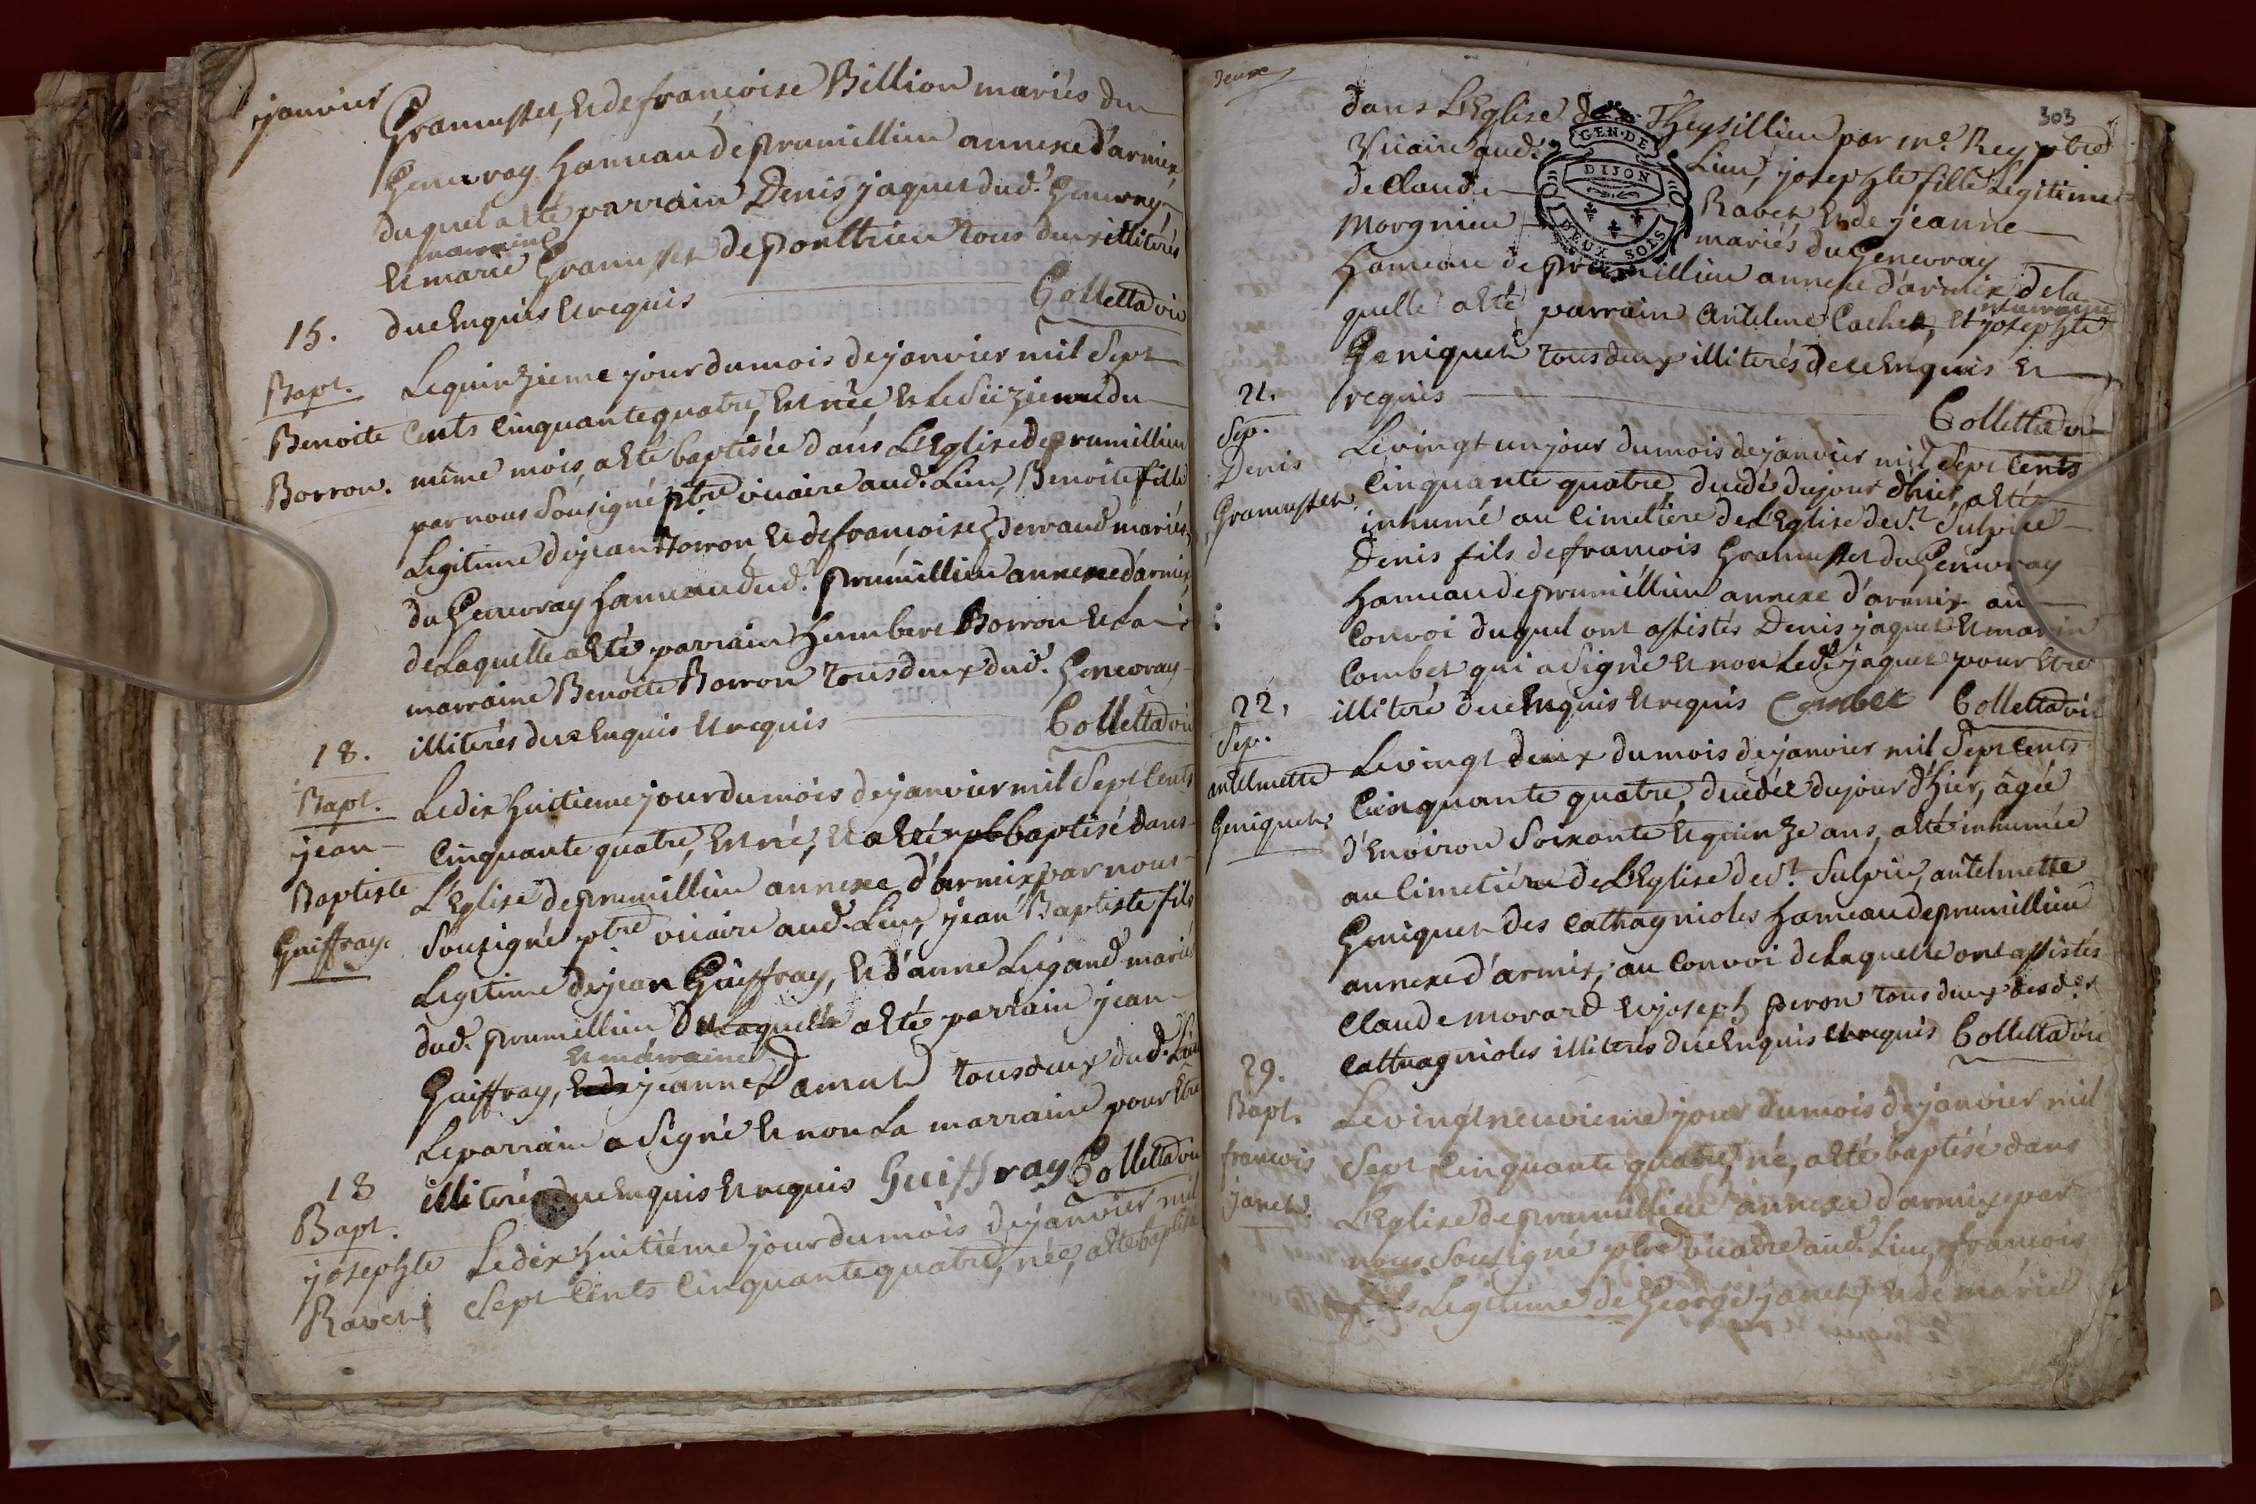 janvier
Gramusset, et de francoise Billion mariés du
Genevray hameau de prumillieu annexe d'armix,
duquel a eté parrain Denis jaquet dud.t Genevray
marraine
et marie Gramusset de ponthieu tous deux illiterés
duc enquis et requis Colletta vic
15.
Bapt.
Benoite
Borron.
Le quinzieme jour du mois de janvier mil Sept
Cents Cinquante quatre, est née et le Seizieme du
même mois, a eté baptisée dans L'Eglise de prumillieu
par nous Sousigné ptre vicaire aud. Lieu, Benoite fille
Legitime de jean Borron, et de francoise Derraud mariés
du Genevray hameau dud.t prumillieu annexe d'armix,
de Laquelle a eté parrain humbert Borron et La
marraine Benoite Borron tous deux dud.t Genevray
illiterés duc enquis et requis Colletta vic
18.
Bapt.
jean
Baptiste
Guiffray.
Le dix huitieme jour du mois de janvier mil Sept Cents
Cinquante quatre, est né, et a eté baptisé dans
L'Eglise de prumillieu annexe d'armix par nous
Sousigné ptre vicaire aud. Lieu, jean Baptiste fils
Legitime de jean Guiffray, et d'anne Ligand mariés
dud. prumillieu De Laquelle a eté parrain jean
et marraine
Guiffray, jeanne Damut tous deux dud. Lieu
Le parrain a Signé et non La marraine pour être
illiteré duc enquis et requis Guiffray Colletta vic
18
Bapt.
josephte
Ravet
Le dix huitiéme jour du mois de janvier mil
Sept Cents Cinquante quatre, née, a eté baptisé
303
dans L'Eglise de Theysillieu par m.e Rey ptre
Vicaire aud. Lieu, josephte fille Legitime
de Claude Ravet et de jeanne
Morgnieu mariés du Genevray
GEN. DE
DIJON
DEUX SOLS
hameau de prumillieu annexe d'armix de la
quelle a eté parrain antelme Cachet, et josephte
marraine
Geniquet tous deux illiterés de ce enquis et
requis Colletta vic
21.
Sep.
Denis
Gramusset.
Le vingt un jour du mois de janvier mil Sept Cents
Cinquante quatre, decedé du jour d'hier, a eté
inhumé au Cimetière de L'Eglise de S.t Sulpice
Denis fils de francois Gramusset du Genevray
hameau de prumillieu annexe d'armix au
Convoi duquel ont assistés Denis jaquet et marin
Combet qui a Signé et non Led.t jaquet pour etre
illiteré de ce enquis et requis Combet Colletta vic
22,
Sep.
antelmette
Geniquet.
Le vingt deux du mois de janvier mil Sept Cents
Cinquante quatre, decedée du jour d'hier, âgée
d'Environ Soixante et quinze ans, a eté inhumée
au Cimetière de L'Eglise de S.t Sulpice, antelmette
Geniquet des Cathagnioles hameau de prumillieu
annexe d'armix, au Convoi de Laquelle ont assistés
Claude Morard et joseph peron tous deux desd.es
Cathagnioles illiterés de ce enquis et requis Colletta vic
29.
Bapt.
francois
janet.
Le vingt neuvieme jour du mois de janvier mil
Sept Cinquante quatre, né, a eté baptisé dans
L'Eglise de prumillieu annexe d'armix par
nous Sousigné ptre vicaire aud. Lieu, francois
fils Legitime de George janet, et de marie